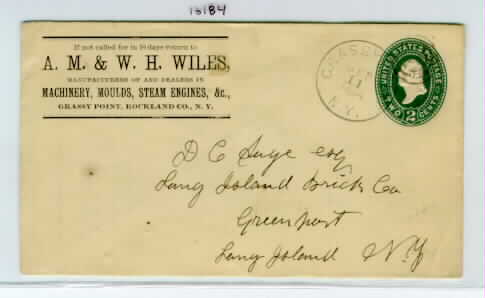 15184
If not called for in 10 days return to
A. M. & W. H. WILES,
MANUFACTURERS OF AND DEALERS IN
MACHINERY, MOULDS, STEAM ENGINES, &c.,
GRASSY POINT, ROCKLAND CO., N. Y.
GRASSY
11
N.Y.
UNITED STATES POSTAGE
TWO 2 CENTS
D C Sage esq
Long Island Brick Co
Greenport
Long Island N.Y